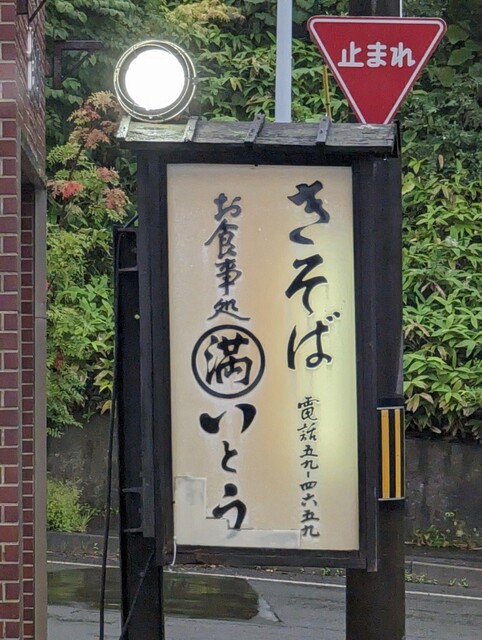 止まれ
きそば
電話五九-四六五九
お食事処
満
いとう